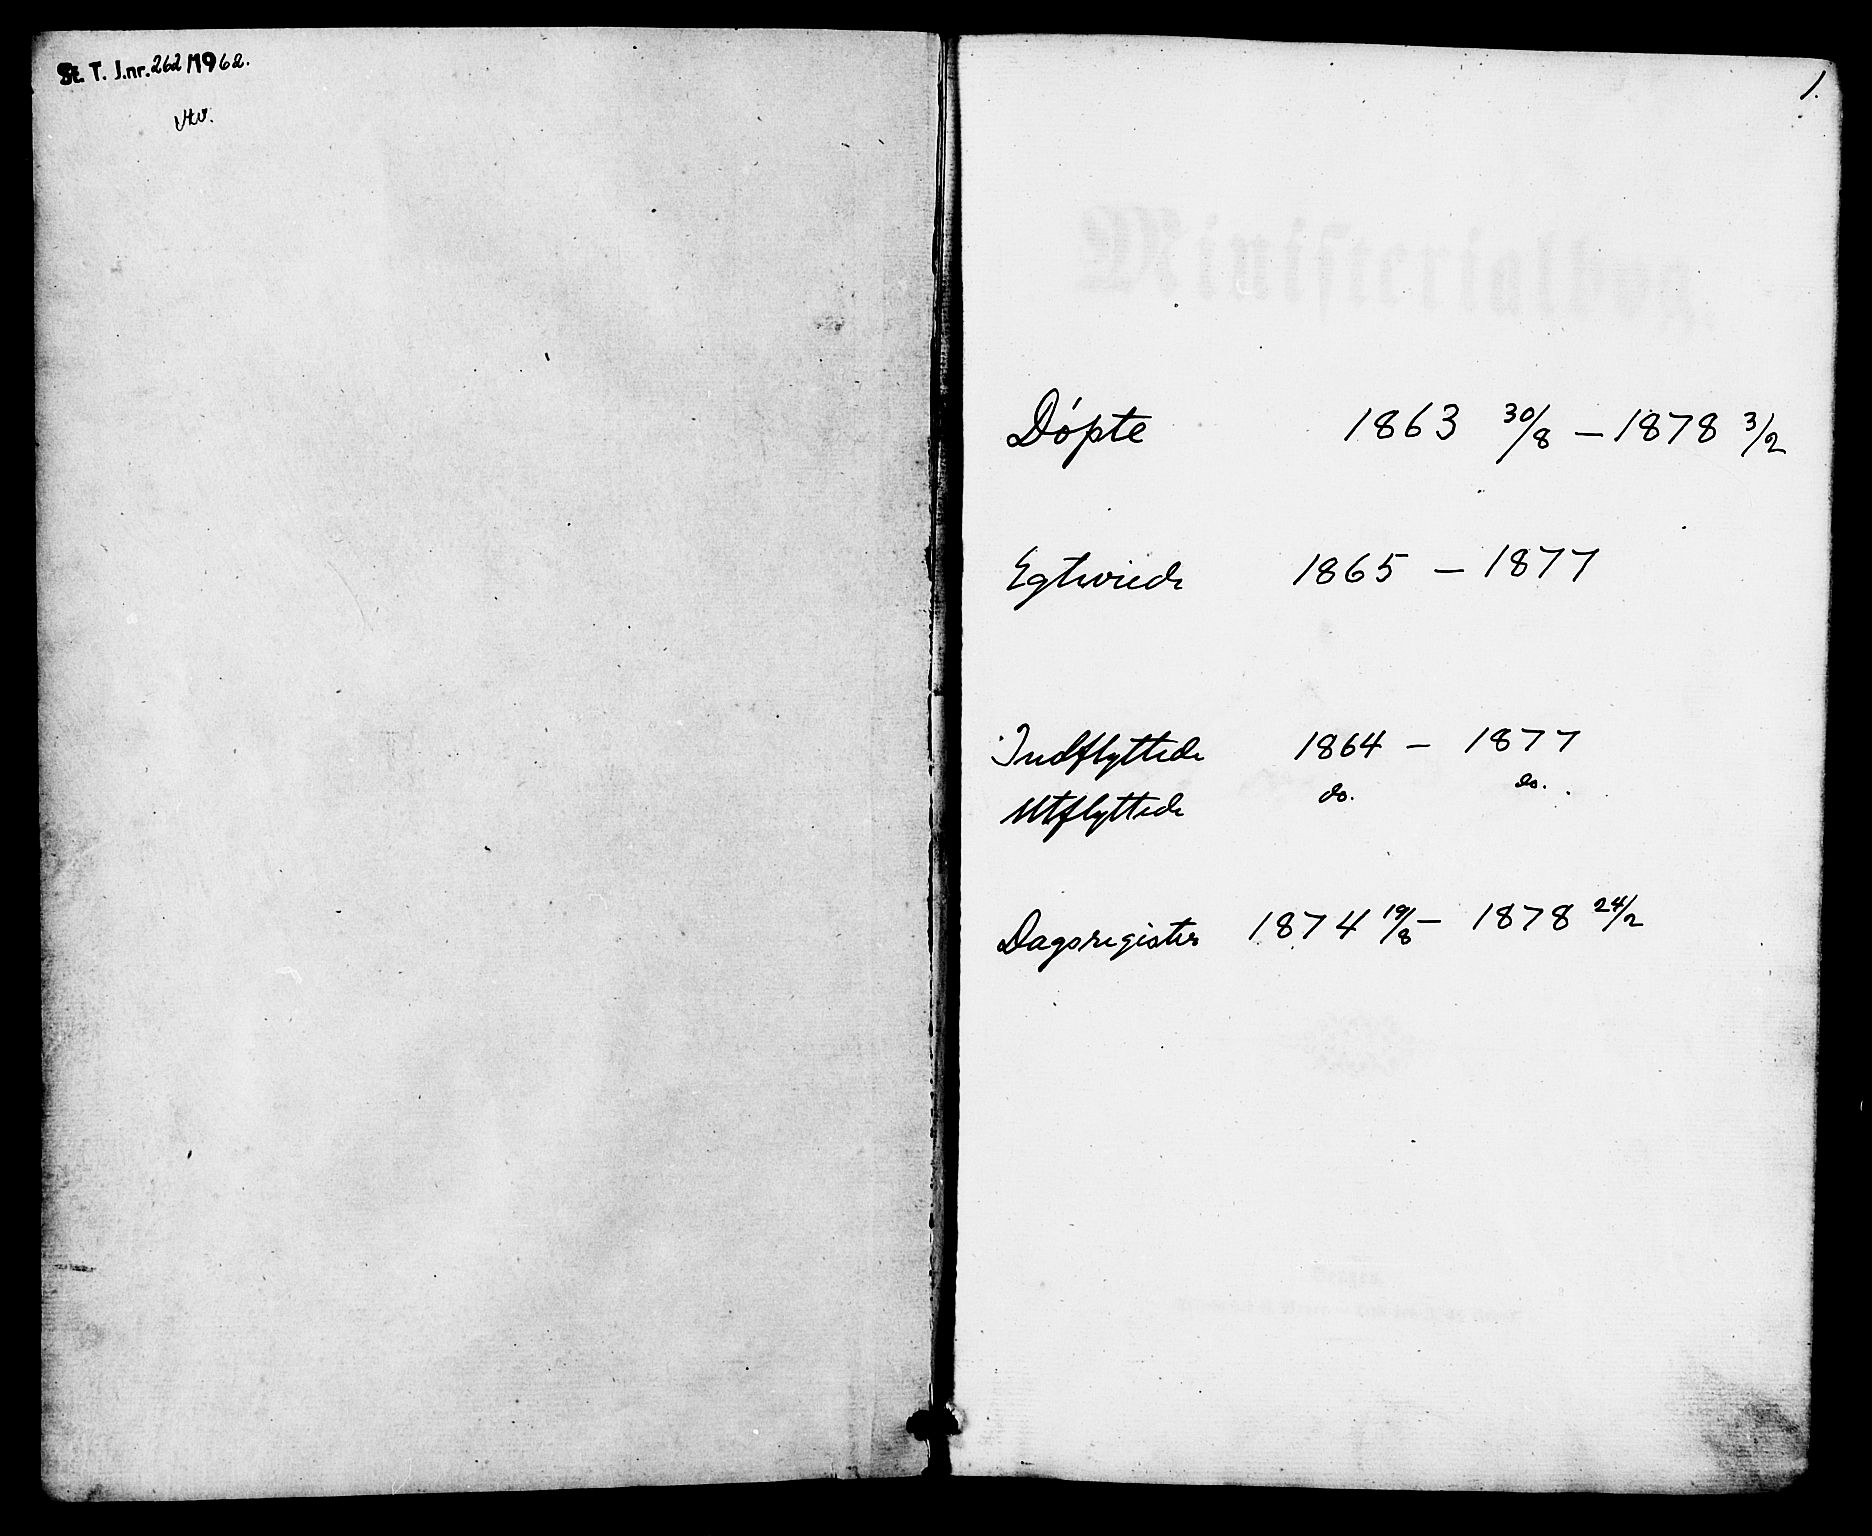 St. T. J.nr. 262/1962.
1.
Ministerialbog
Døpte 1863 30/8 — 1878 3/2
Egteviede 1865 — 1877
Indflyttede 1864 — 1877
Utflyttede do. do.
Dagsregister 1874 19/8 — 1878 24/2